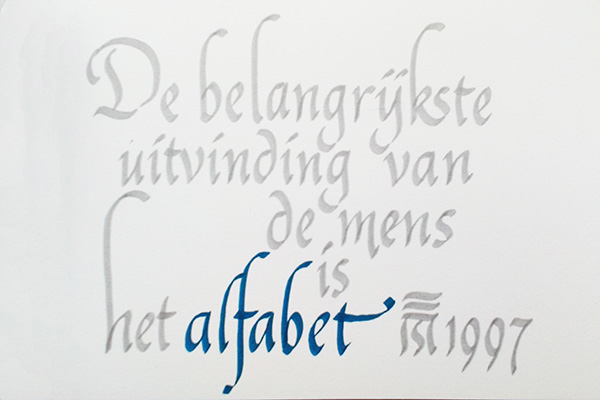 De belangrijkste
uitvinding van
de mens
is
het alfabet 1997